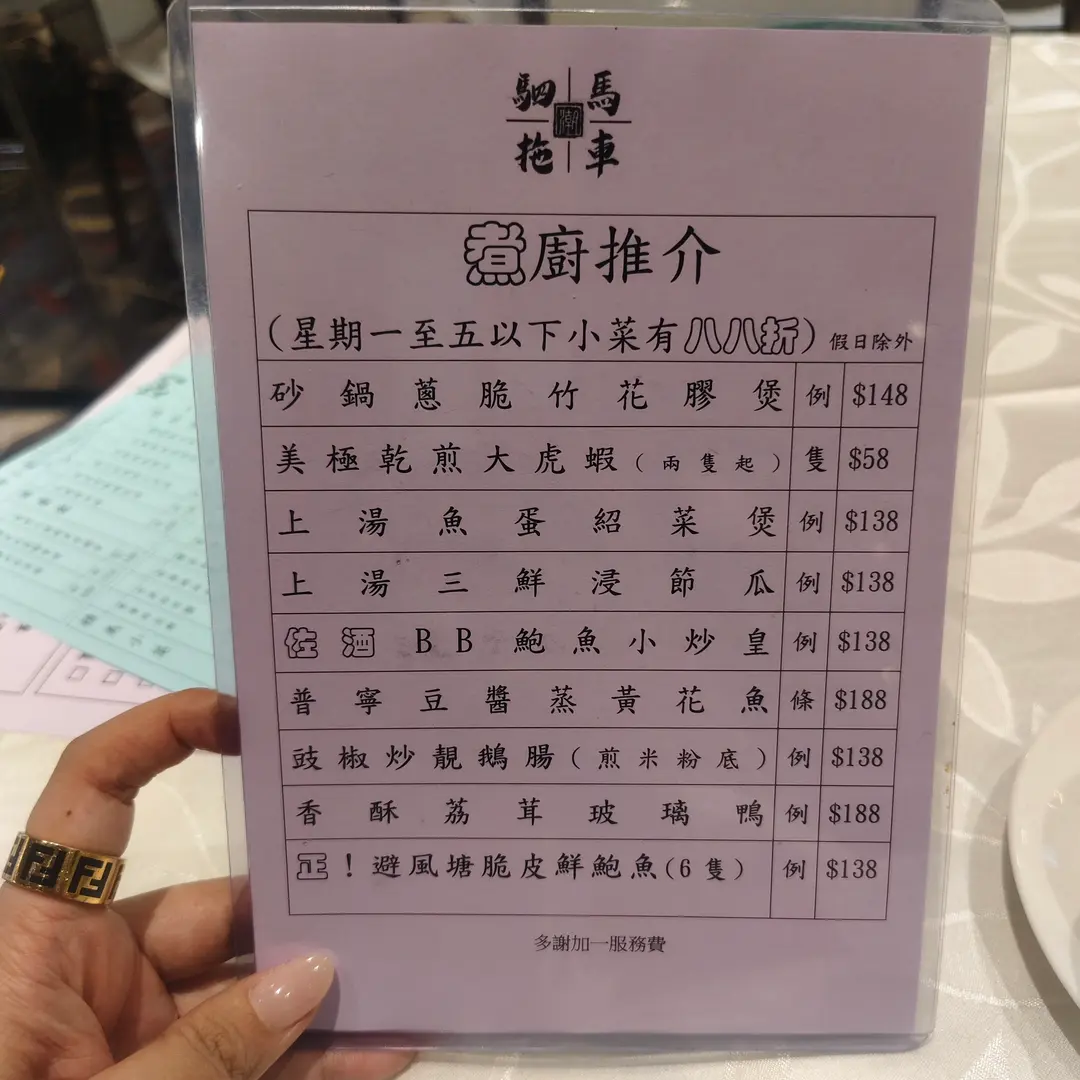 駟馬
潮
拖車
煮廚推介
(星期一至五以下小菜有八八折)假日除外
砂鍋蔥脆竹花膠煲 例 $148
美極乾煎大虎蝦(兩隻起) 隻 $58
上湯魚蛋紹菜煲 例 $138
上湯三鮮浸節瓜 例 $138
佐酒BB鮑魚小炒皇 例 $138
普寧豆醬蒸黃花魚 條 $188
豉椒炒靚鵝腸(煎米粉底) 例 $138
香酥荔茸玻璃鴨 例 $188
正!避風塘脆皮鮮鮑魚(6隻) 例 $138
多謝加一服務費